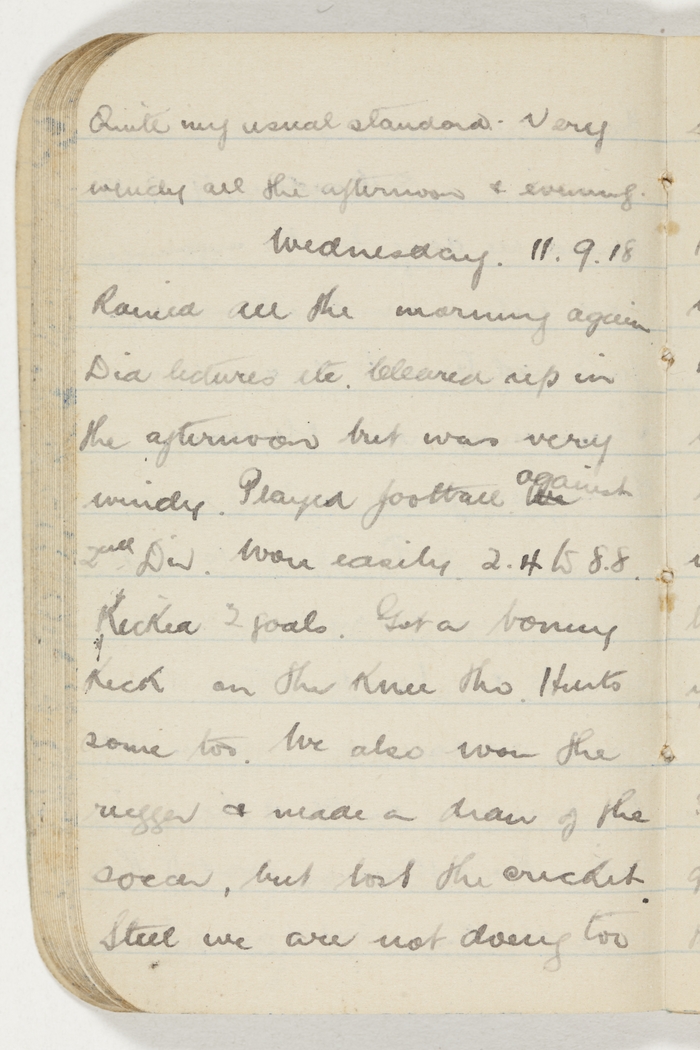 Quite my usual standard. Very
windy all the afternoon & evening.
Wednesday. 11.9.18
Rained all the morning again
Did lectures etc. Cleared up in
the afternoon but was very
windy. Played football against
2nd Div. Won easily. 2.4 to 8.8.
Kicked 2 goals. Got a bonny
kick on the knee tho. Hurts
some too. We also won the
rugger & made a draw of the
soccer, but lost the cricket.
Still we are not doing too